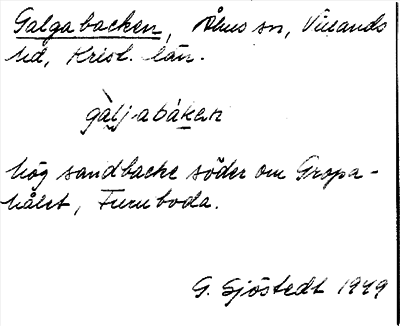 Galgabacken, Åhus sn, Villands
hd, Krist. län.
galjabáken
hög sandbacke söder om Gropa-
hålet, Furuboda.
G. Sjöstedt 1949